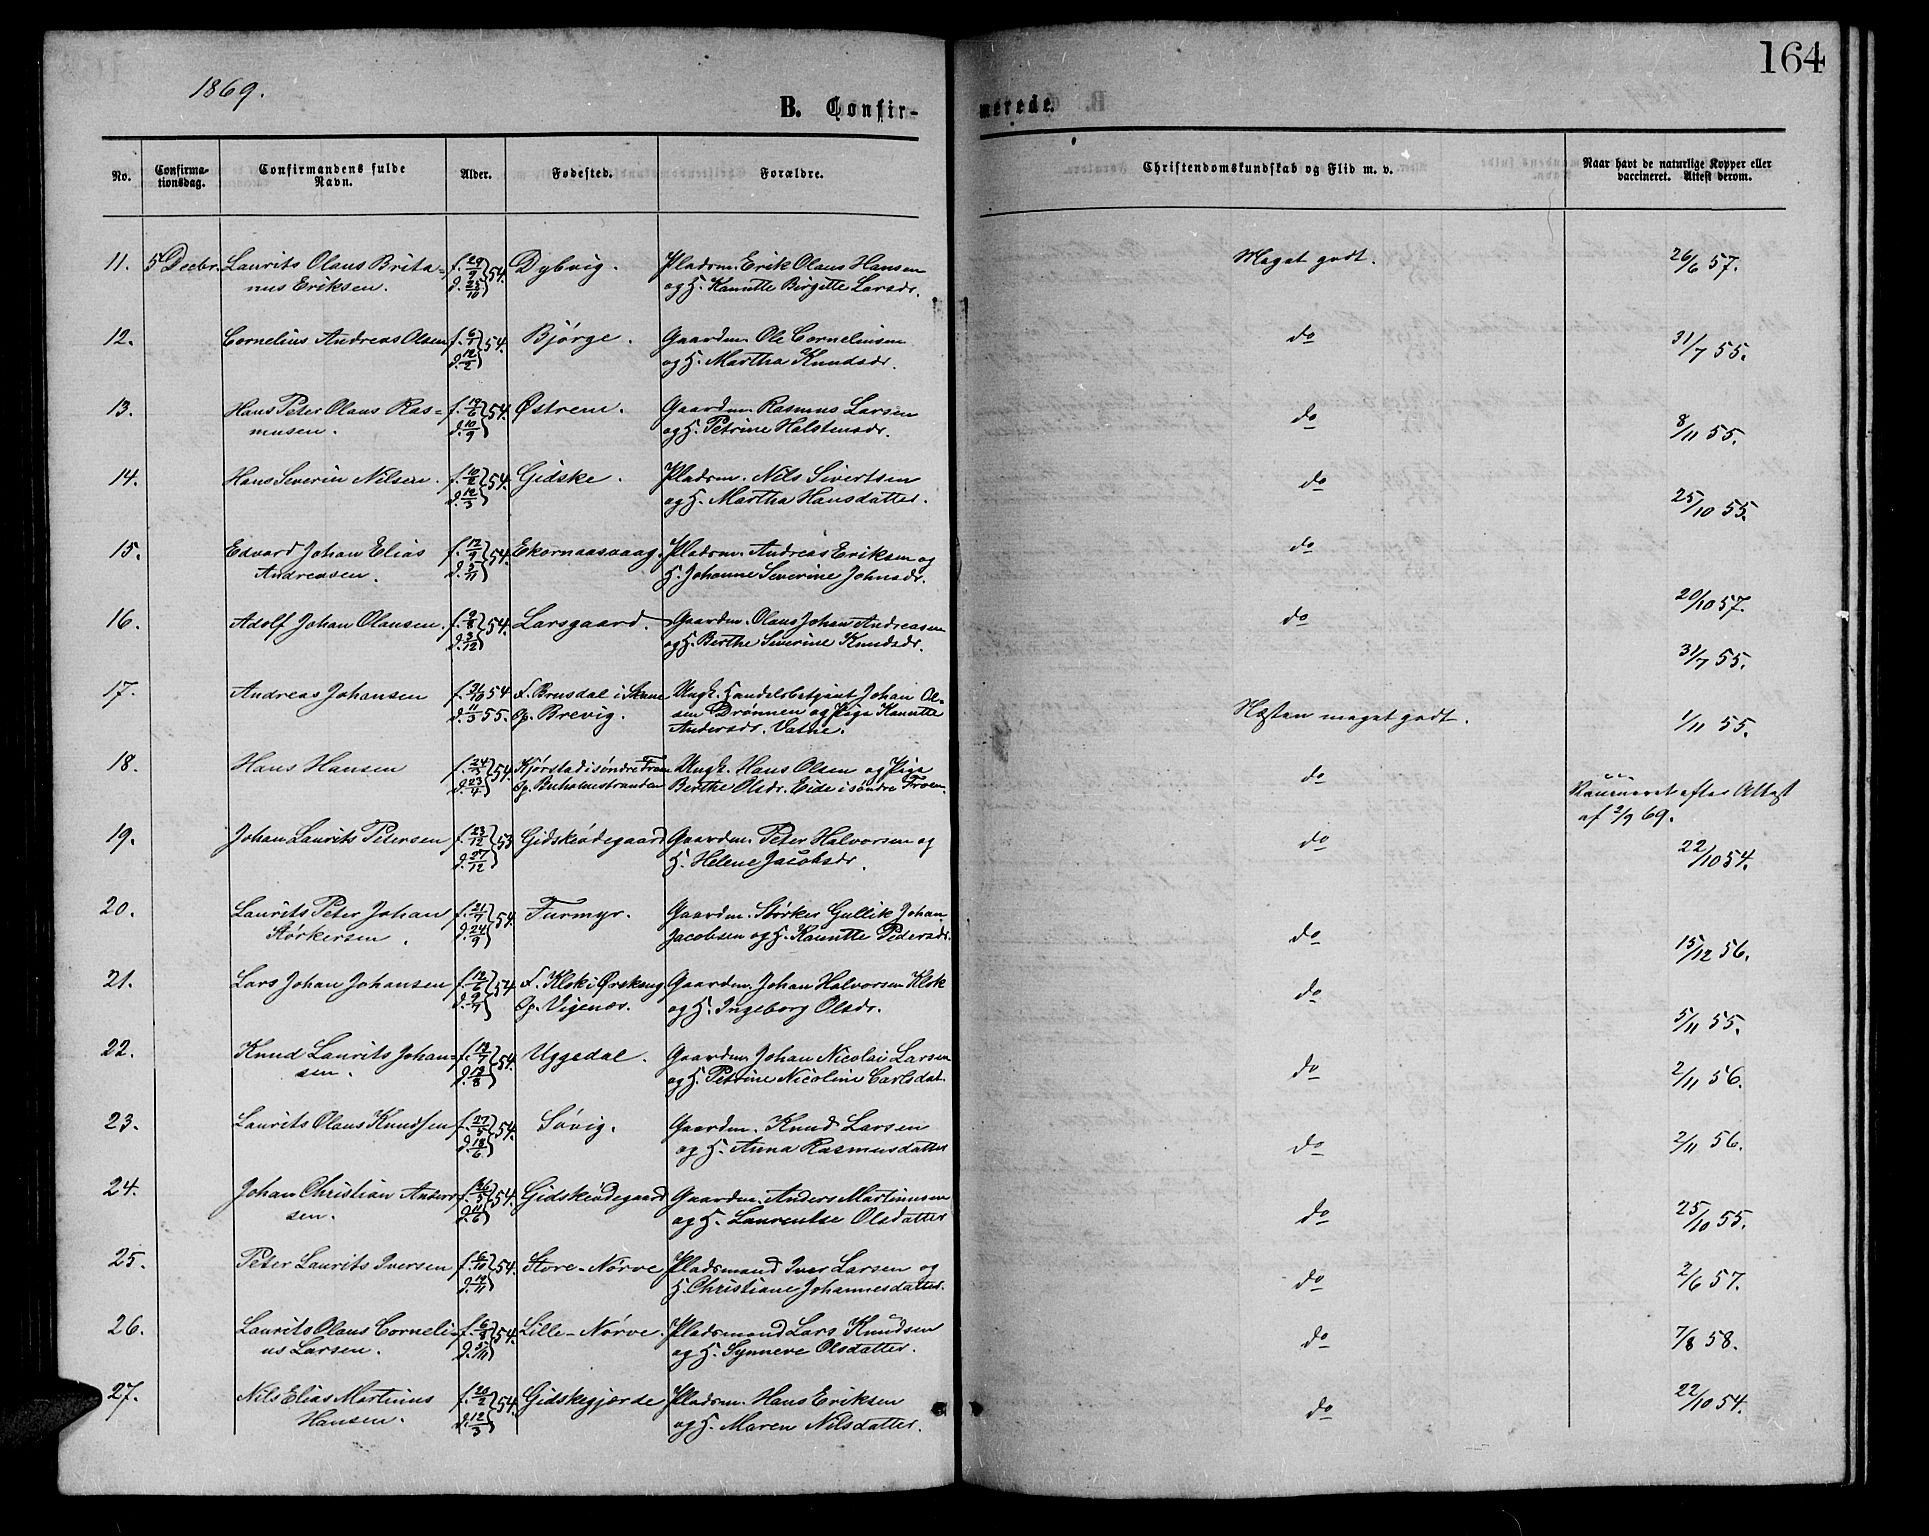 164
1869.
B. Confirmerede.
No. Confirmationsdag. Confirmandens fulde Navn. Alder. Fødested. Forældre. Christendomskundskab og Flid m. v. Naar havt de naturlige Kopper eller vaccineret. Attest derom.
11. 5 Decbr. Laurits Olaus Brita- f. 29/9 54. Dybvig. Pladsm. Erik Olaus Hansen Meget godt. 26/6 57.
nus Eriksen. d. 25/10 og H. Kanutte Birgitte Larsdr.
12. Cornelius Andreas Olsen f. 6/1 54. Bjørge. Gaardm. Ole Corneliusen do 31/7 55.
d. 12/2 og H. Martha Knudsdr.
13. Hans Peter Olaus Ras- f. 19/6 54. Østrem. Gaardm. Rasmus Larsen do 8/11 55.
musen. d. 10/9 og H. Petrine Halstensdr.
14. Hans Severin Nilsen. f. 10/2 54. Gidske. Pladsm. Nils Sivertsen do 25/10 55.
d. 12/3 og H. Martha Hansdatter.
15. Edvard Johan Elias f. 12/9 54. Ekornaasvaag. Pladsm. Andreas Eriksen og do 20/10 57.
Andreasen. d. 5/11 H. Johanne Severine Johnsdr.
16. Adolf Johan Olausen. f. 9/8 54. Larsgaard. Gaardm. Olaus Johan Andreasen do 31/7 55.
d. 3/12 og H. Berthe Severine Knudsdr.
17. Andreas Johansen f. 31/10 54 F. Brusdal i Skaue Ungk. Handelsbetjent Johan Ol- Næsten meget godt. 1/11 55.
d. 11/3 55. Op. Brevig. sen Drønnen og Pige Kanutte
Andersdr. Vatne.
18. Hans Hansen f. 24/3 54. Kjørstad i søndre Froen Ungk. Hans Olsen og Pige do Vaccineret efter Attest
d. 23/4 Op. Buholmstranden Berthe Olsdr. Eide i søndre Froen. af 2/9 69.
19. Johan Laurits Petersen f. 23/12 53 Gidskeødegaard Gaardm. Peter Halvorsen og do 22/10 54.
d. 27/12 H. Helene Jacobsdr.
20. Laurits Peter Johan f. 21/7 54. Furmyr. Gaardm. Størker Gullik Johan do 15/12 56.
Størkersen. d. 24/9 Jacobsen og H. Kanutte Pedersdr.
21. Lars Johan Johansen f. 12/6 54. F. Klok i Ørskoug Gaardm. Johan Halvorsen Klok do 5/11 55.
d. 9/7 Op. Vigenæs. og H. Ingeborg Olsdr.
22. Knud Laurits Johan- f. 13/7 54. Uggedal. Gaardm. Johan Nicolai Larsen do 2/11 56.
sen. d. 13/8 og H. Petrine Nicoline Carlsdat.
23. Laurits Olaus Knudsen f. 27/5 54. Søvig. Gaardm. Knud Larsen do 2/11 56.
d. 18/6 og H. Anna Rasmusdatter
24. Johan Christian Anders- f. 16/5 54. Gidskeødegaard Gaardm. Anders Martinusen do 25/10 55.
sen. d. 11/6 og H. Laurentse Olsdatter
25. Peter Laurits Iversen f. 6/10 54. Store-Nørve Pladsmand Iver Larsen og do 2/6 57.
d. 19/11 H. Christiane Johannesdatter.
26. Laurits Olaus Corneli- f. 6/8 54. Lille-Nørve. Pladsmand Lars Knudsen do 7/8 58.
us Larsen. d. 5/11 og H. Synneve Olsdatter.
27. Nils Elias Martinus f. 20/2 54. Gidskegjærde Pladsm. Hans Eriksen do 22/10 54.
Hansen. d. 12/3 og H. Maren Nilsdatter.